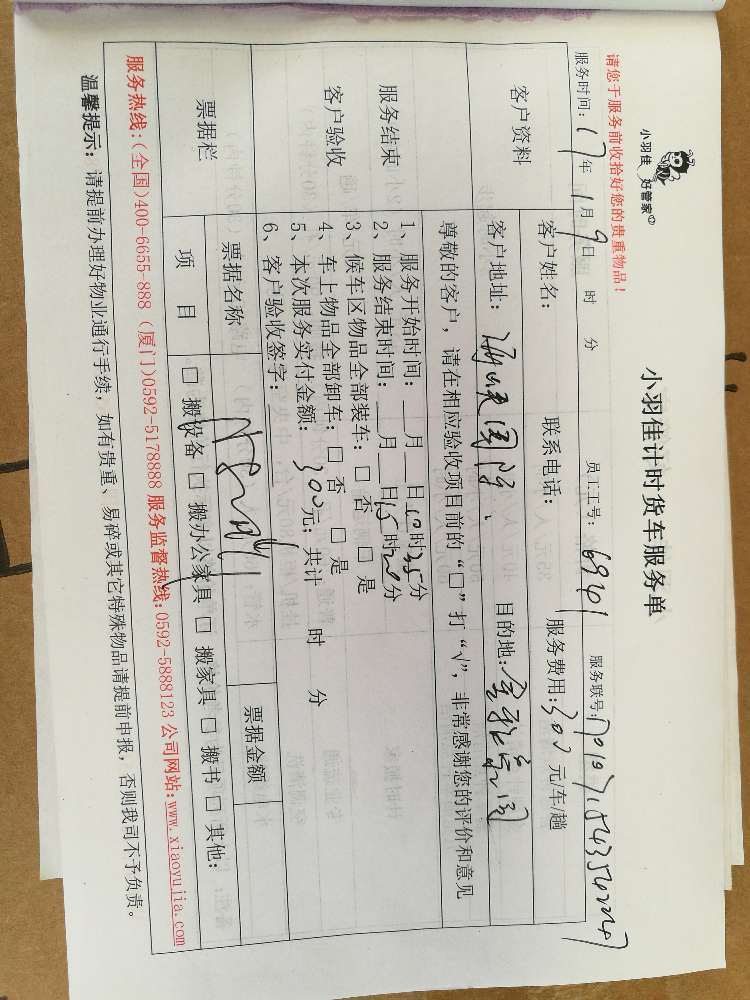 小羽佳 好管家
小羽佳计时货车服务单
请您于服务前收拾好您的贵重物品！
服务时间：17年 1月 9日 时 分 员工工号：6941 服务联号：
客户资料
客户姓名： 联系电话： 服务费用：300 元/车/趟
客户地址： 目的地：
尊敬的客户，请在相应验收项目前的“□”打“√”，非常感谢您的评价和意见
服务结束
客户验收
1、服务开始时间：__月__日 时35分
2、服务结束时间：__月__日15时20分
3、候车区物品全部装车：□ 否 □ 是
4、车上物品全部卸车：□ 否 □ 是
5、本次服务实付金额：300元；共计 时 分
6、客户验收签字：
票据栏
票据名称 票据金额
项 目 □ 搬设备 □ 搬办公家具 □ 搬家具 □ 搬书 □ 其他：
服务热线：(全国)400-6655-888 (厦门)0592-5178888 服务监督热线：0592-5888123 公司网站：www.xiaoyujia.com
温馨提示：请提前办理好物业通行手续，如有贵重、易碎或其它特殊物品请提前申报，否则我司不予负责。